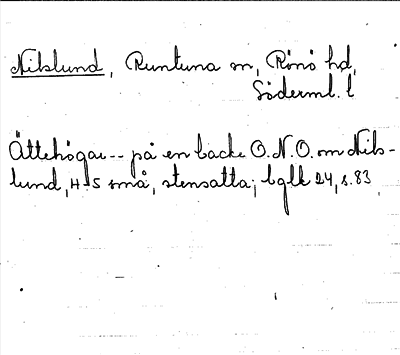 Nilslund, Runtuna sn, Rönö hd,
Söderml. l
Ättehögar -- på en backe O.N.O. om Nils-
lund, 4-5 små, stensatta; bglk 24, s. 83